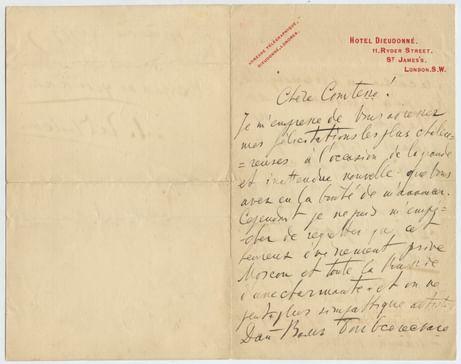 ADRESSE TÉLÉGRAPHIQUE,
DIEUDONNÉ, LONDRES.
HOTEL DIEUDONNÉ.
11, RYDER STREET,
ST JAMES'S,
LONDON. S.W.
Chère Comtesse!
Je m'empresse de Vous adresser
mes félicitations les plus chaleu=
=reuses à l'occasion de la grande
et inattendue nouvelle que Vous
avez eu la bonté de m'annoncer.
Cependant je ne puis m'empê-
cher de regretter que cet
heureux événement prive
Moscou et toute la Russie
d'une charmante et on ne
peut plus simpathique artiste